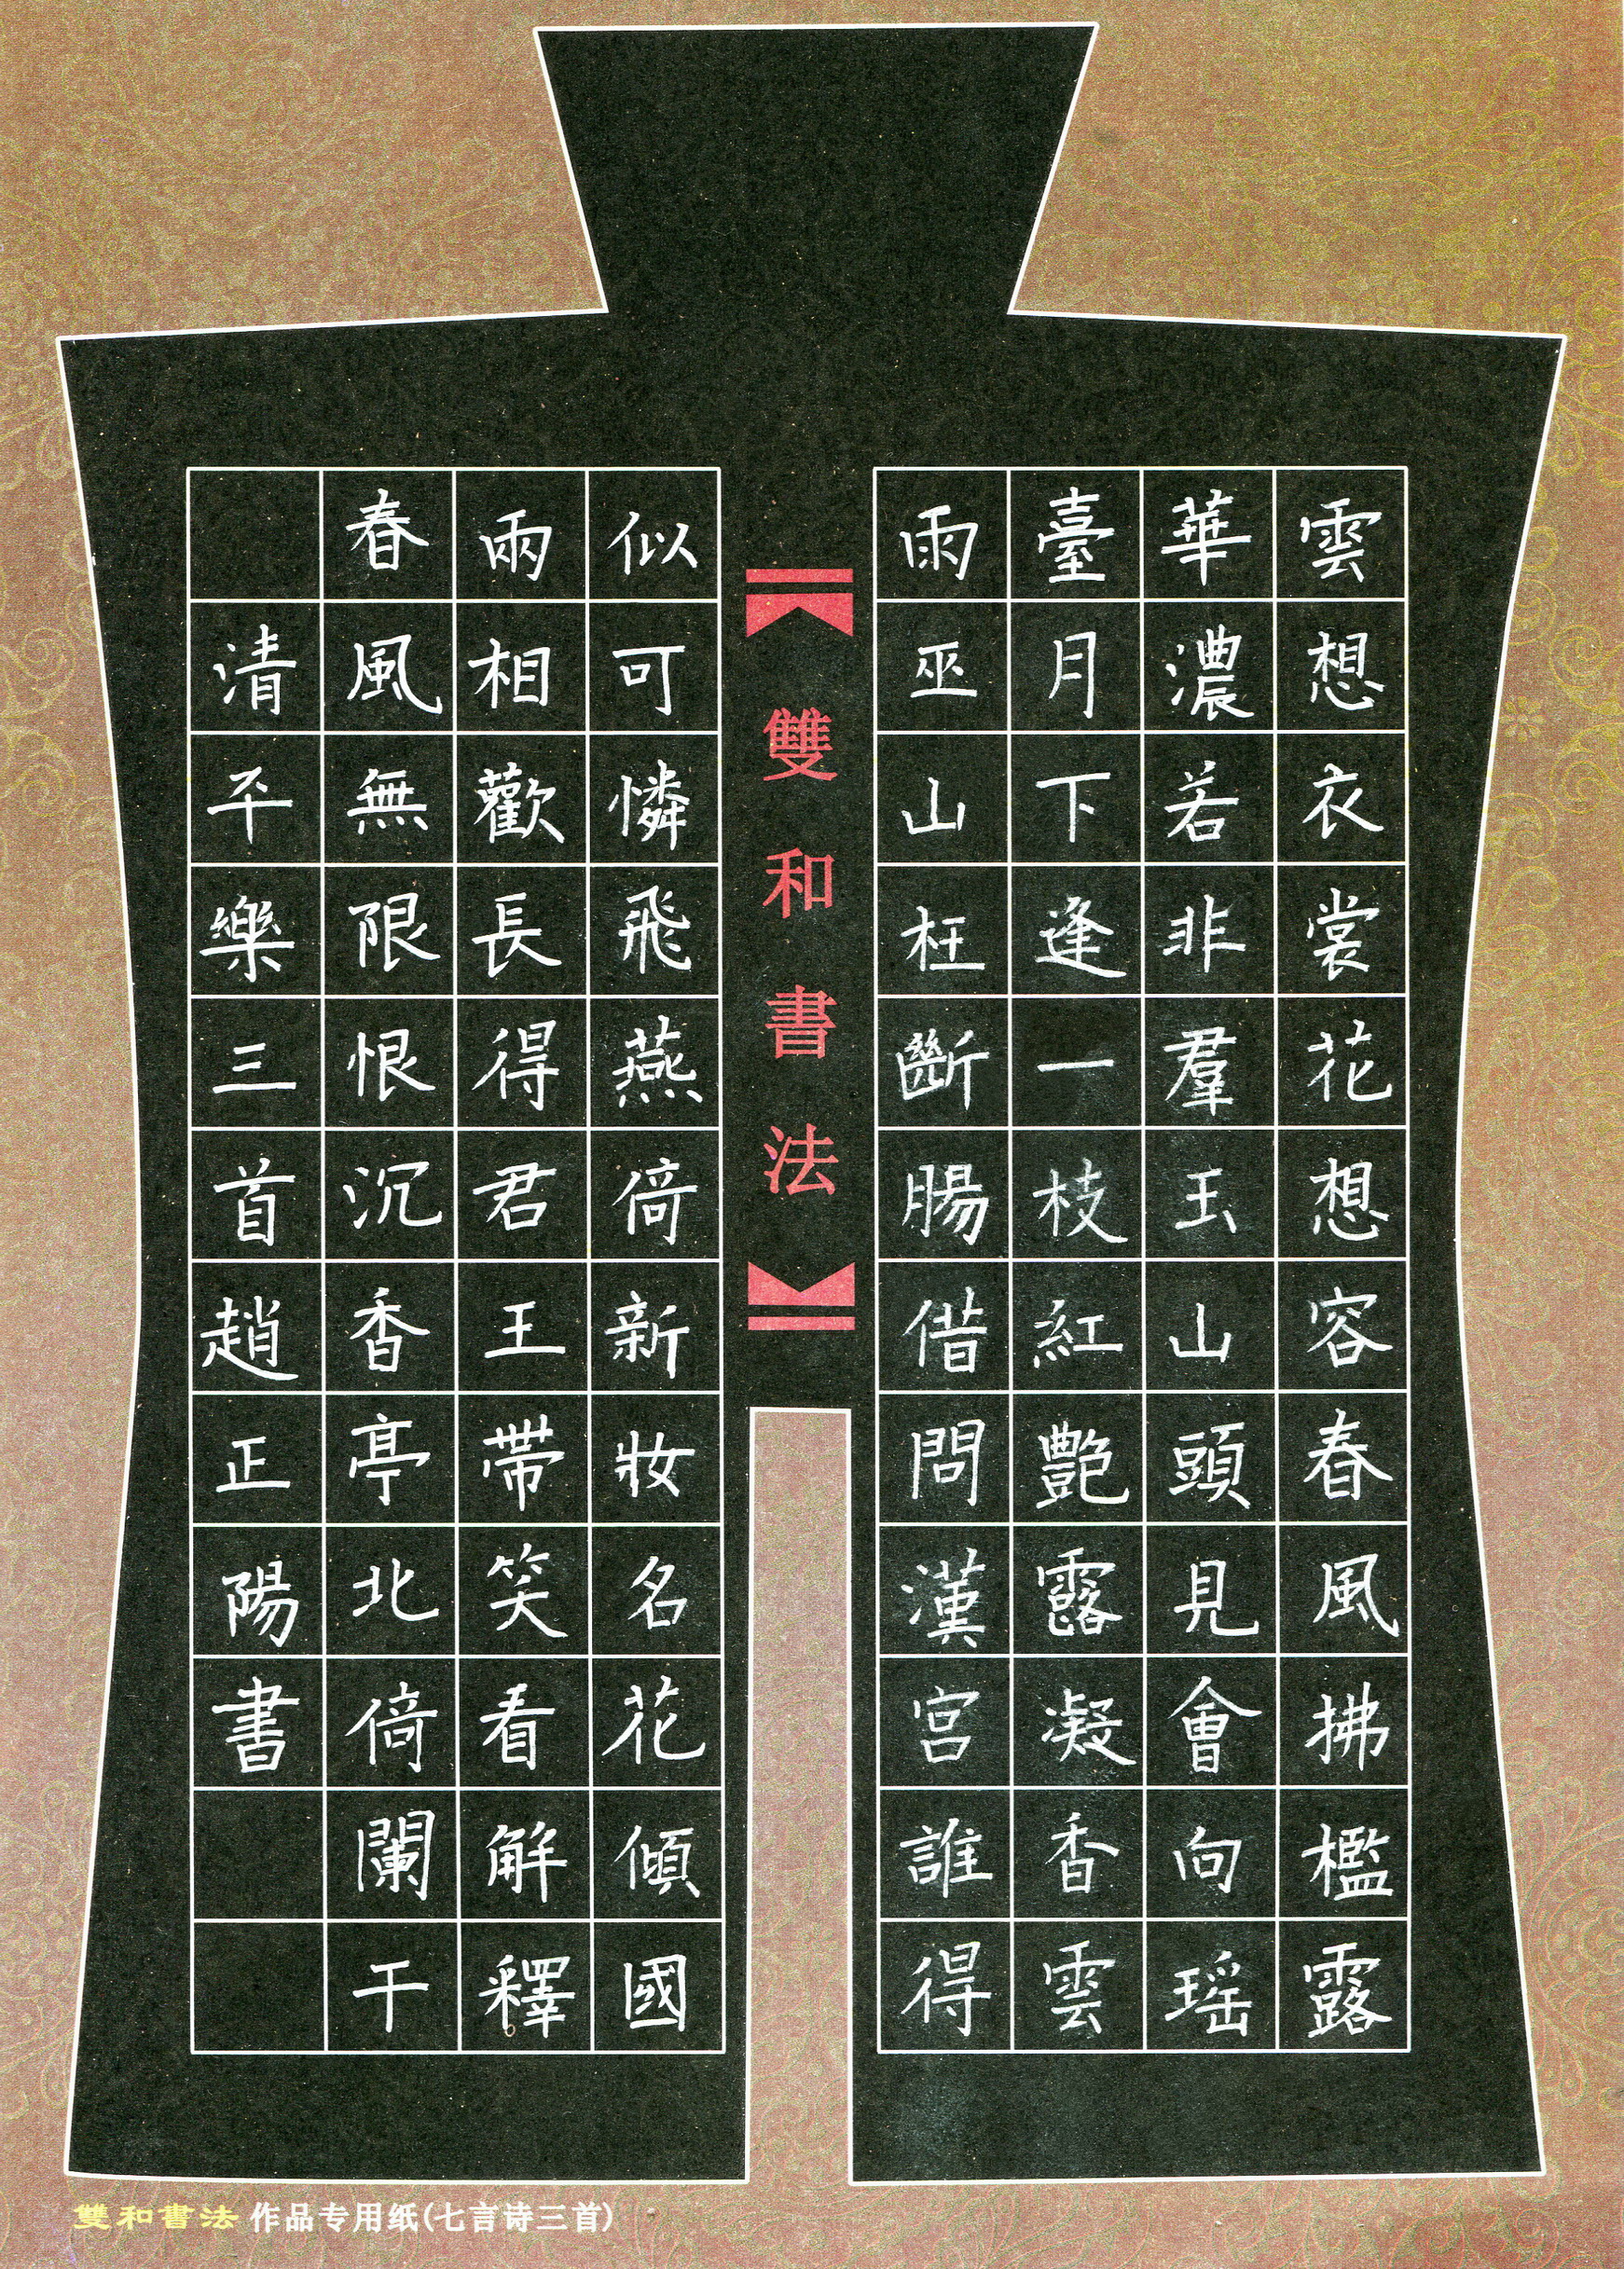 雲想衣裳花想容春風拂檻露
華濃若非羣玉山頭見會向瑶
臺月下逢一枝紅艷露凝香雲
雨巫山枉斷腸借問漢宮誰得
雙和書法
似可憐飛燕倚新妝名花傾國
兩相歡長得君王帶笑看解釋
春風無限恨沉香亭北倚闌干
清平樂三首趙正陽書
雙和書法 作品专用纸(七言诗三首)